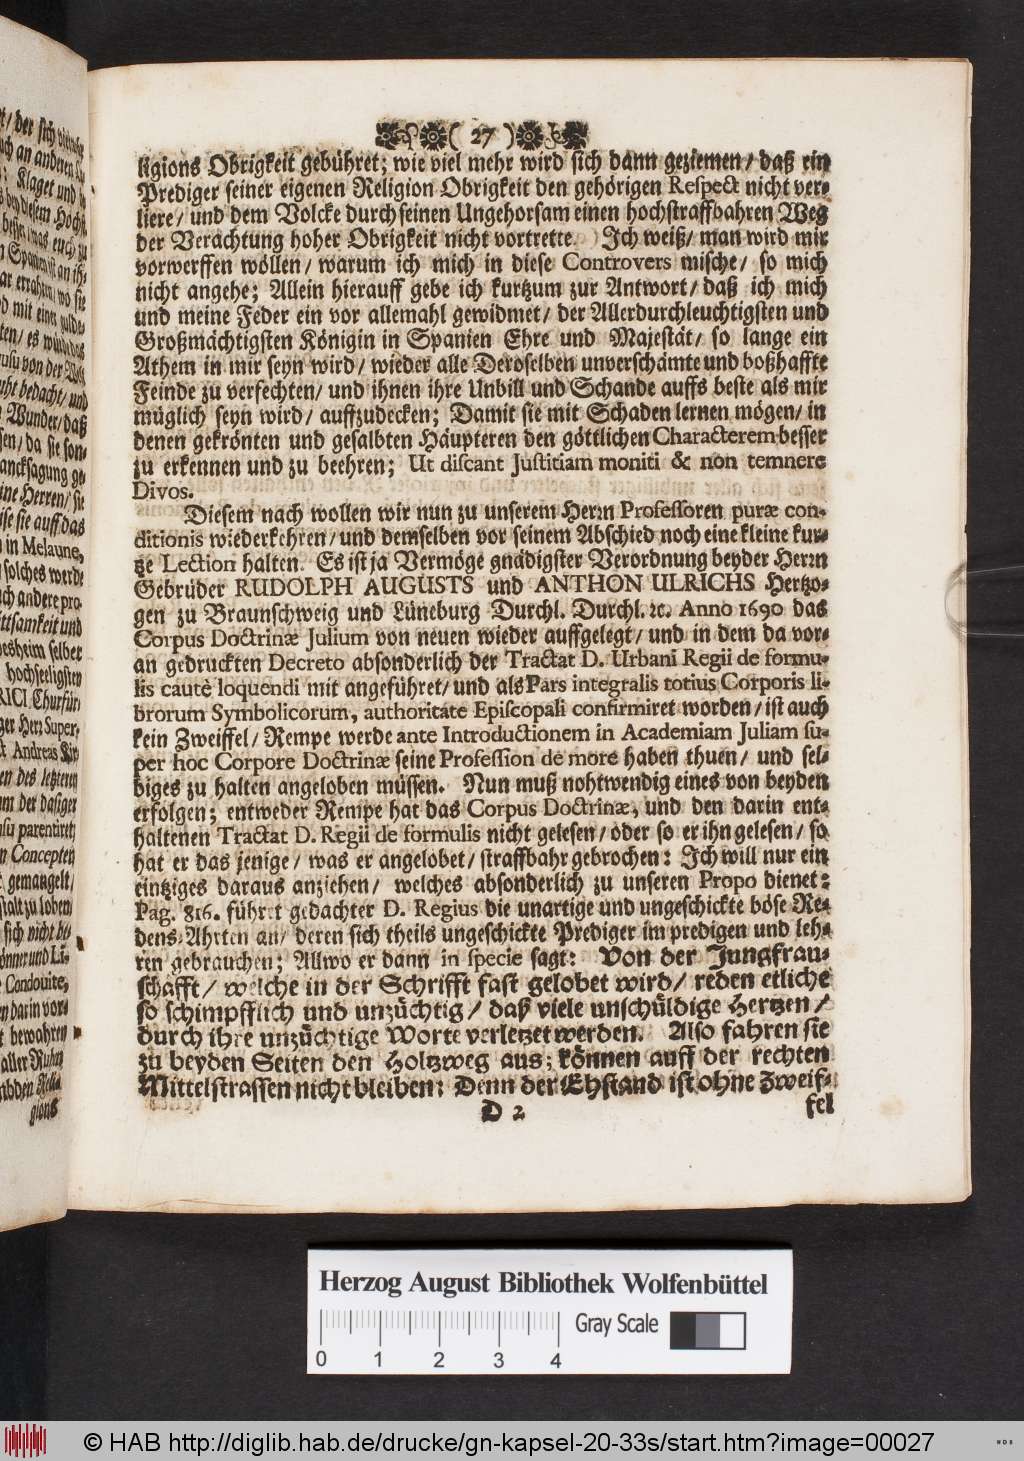 ( 27 )
ligions Obrigkeit gebühret; wie viel mehr wird sich dann geziemen/ daß ein
Prediger seiner eigenen Religion Obrigkeit den gehörigen Respect nicht ver-
liere/ und dem Volcke durch seinen Ungehorsam einen hochstraffbahren Weg
der Verachtung hoher Obrigkeit nicht vortrette. Ich weiß/ man wird mir
vorwerffen wöllen/ warum ich mich in diese Controvers mische/ so mich
nicht angehe; Allein hierauff gebe ich kurtzum zur Antwort/ daß ich mich
und meine Feder ein vor allemahl gewidmet/ der Allerdurchleuchtigsten und
Großmächtigsten Königin in Spanien Ehre und Majestät/ so lange ein
Athem in mir seyn wird/ wieder alle Deroselben unverschämte und boßhaffte
Feinde zu verfechten/ und ihnen ihre Unbill und Schande auffs beste als mir
müglich seyn wird/ auffzudecken; Damit sie mit Schaden lernen mögen/ in
denen gekrönten und gesalbten Häupteren den göttlichen Characterem besser
zu erkennen und zu beehren; Ut discant Justitiam moniti & non temnere
Divos.
Diesem nach wollen wir nun zu unserem Herrn Professoren puræ con-
ditionis wiederkehren/ und demselben vor seinem Abschied noch eine kleine kur-
tze Lection halten. Es ist ja Vermöge gnädigster Verordnung beyder Herrn
Gebrüder RUDOLPH AUGUSTS und ANTHON ULRICHS Hertzo-
gen zu Braunschweig und Lüneburg Durchl. Durchl. ꝛc. Anno 1690 das
Corpus Doctrinæ Julium von neuen wieder auffgelegt/ und in dem da vor-
an gedruckten Decreto absonderlich der Tractat D. Urbani Regii de formu-
lis cautè loquendi mit angeführet/ und als Pars integralis totius Corporis li-
brorum Symbolicorum, authoritate Episcopali confirmiret worden/ ist auch
kein Zweiffel/ Rempe werde ante Introductionem in Academiam Juliam su-
per hoc Corpore Doctrinæ seine Profession de more haben thuen/ und sel-
biges zu halten angeloben müssen. Nun muß nohtwendig eines von beyden
erfolgen; entweder Rempe hat das Corpus Doctrinæ, und den darin ent-
haltenen Tractat D. Regii de formulis nicht gelesen/ oder so er ihn gelesen/ so
hat er das jenige/ was er angelobet/ straffbahr gebrochen: Ich will nur ein
eintziges daraus anziehen/ welches absonderlich zu unseren Propo dienet:
Pag. 816. führet gedachter D. Regius die unartige und ungeschickte böse Re-
dens-Ahrten an/ deren sich theils ungeschickte Prediger im predigen und leh-
ren gebrauchen; Allwo er dann in specie sagt: Von der Jungfrau-
schafft/ welche in der Schrifft fast gelobet wird/ reden etliche
so schimpfflich und unzüchtig/ daß viele unschüldige Hertzen/
durch ihre unzüchtige Worte verletzet werden. Also fahren sie
zu beyden Seiten den Holtzweg aus; können auff der rechten
Mittelstrassen nicht bleiben: Denn der Ehstand ist ohne Zweif-
D 2 fel
Herzog August Bibliothek Wolfenbüttel
Gray Scale
0 1 2 3 4
© HAB http://diglib.hab.de/drucke/gn-kapsel-20-33s/start.htm?image=00027